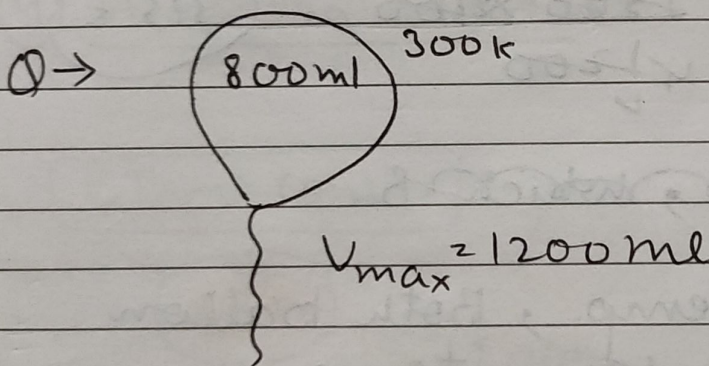 Q→ 800ml 300K
Vmax = 1200ml